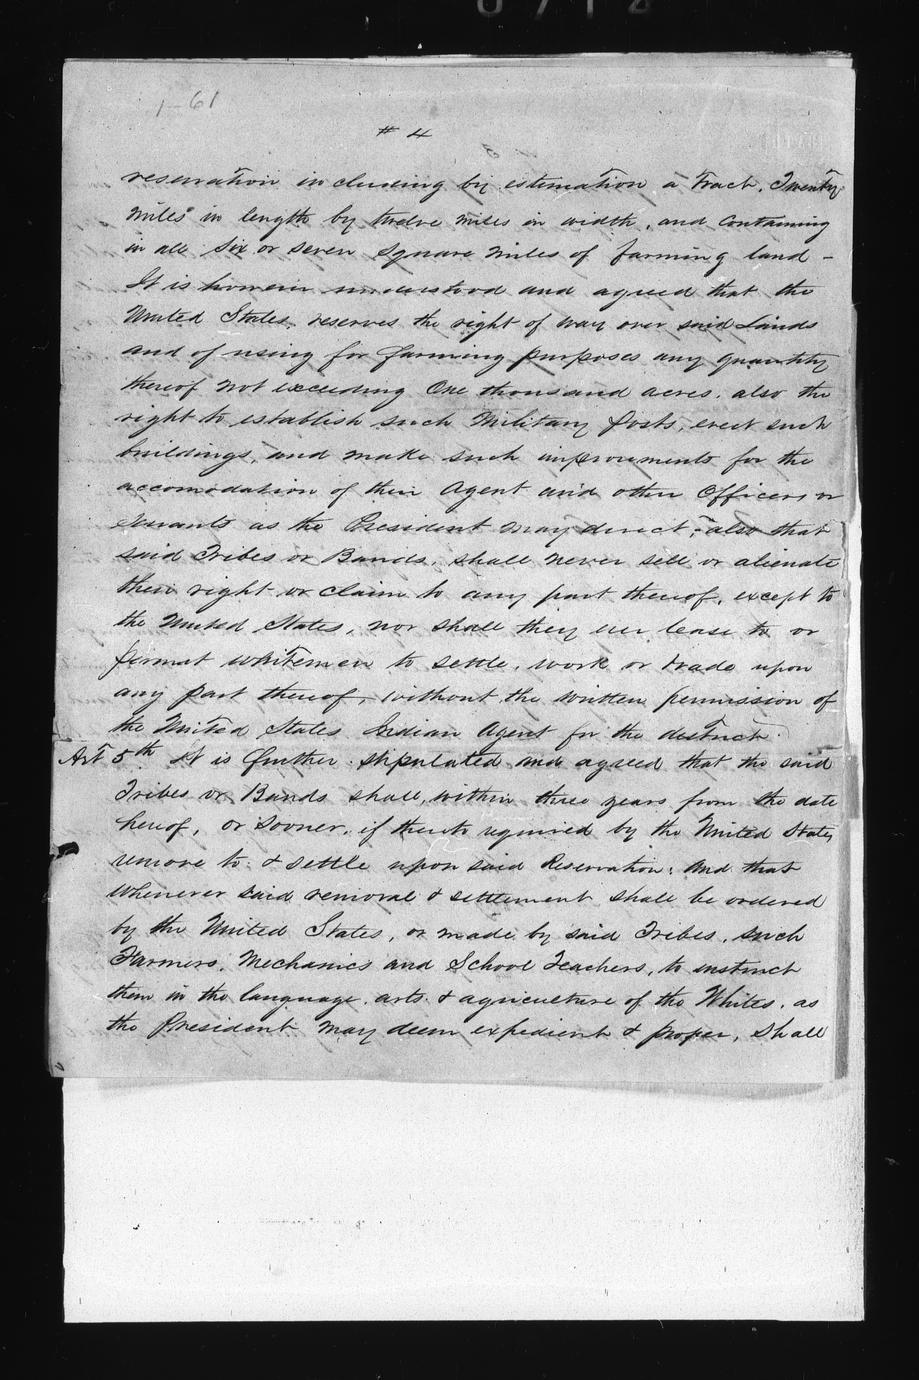 1-61
# 4
reservation including by estimation a Tract, Twenty
miles in length by twelve miles in width, and containing
in all six or seven square miles of farming land -
It is however understood and agreed that the
United States, reserves the right of way over said Lands
and of using for farming purposes any quantity
thereof not exceeding One thousand acres, also the
right to establish such Military posts, erect such
buildings, and make such improvments for the
accomodation of their Agent and other Officers or
servants as the President may direct; also that
said Tribes or Bands, shall never sell or alienate
their right or claim to any part thereof, except to
the United States, nor shall they ever lease to or
permat whitemen to settle, work or trade upon
any part thereof, without the written permission of
the United States Indian Agent for the destrict.
Art 5th It is further stipulated and agreed that the said
Tribes or Bands shall, within three years from the date
hereof, or sooner, if thereto required by the United States,
remove to & settle upon said Reservation; And that
whenever said removal & settlement shall be ordered
by the United States, or made by said Tribes, such
Farmers, Mechanics and School Teachers, to instruct
them in the language, arts & agriculture of the Whites, as
the President may deem expedient & proper, shall